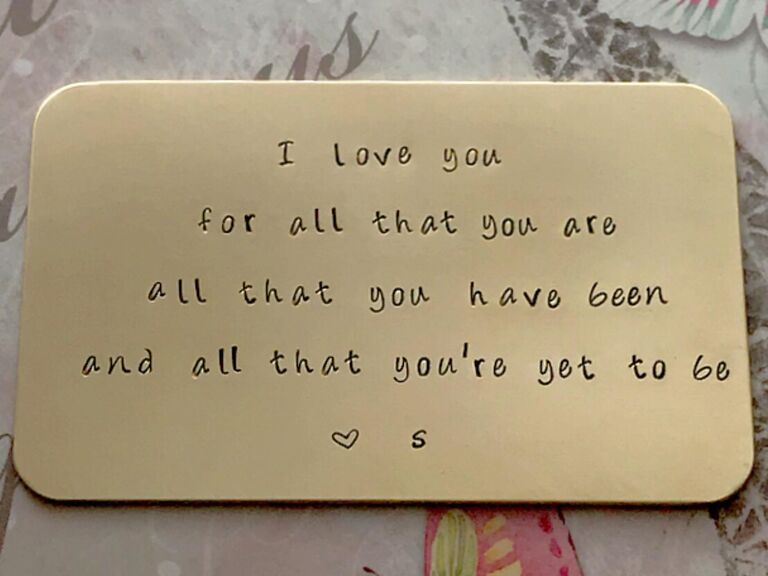 I love you
for all that you are
all that you have been
and all that you're yet to be
♡ s